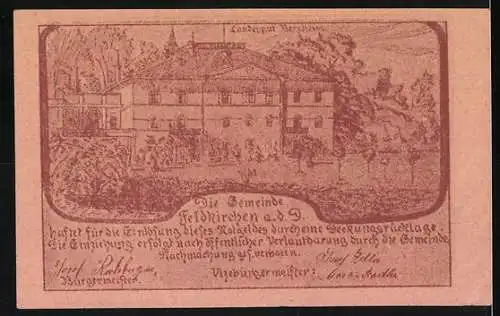 Landesgut Bergheim
Die Gemeinde
Feldkirchen a. d. D.
haftet für die Einlösung dieses Notgeldes durch eine Deckungsrücklage.
Die Einziehung erfolgt nach öffentlicher Verlautbarung durch die Gemeinde
Nachmachung ges. verboten.
Josef
Bürgermeister.
Vizebürgermeister:
Josef